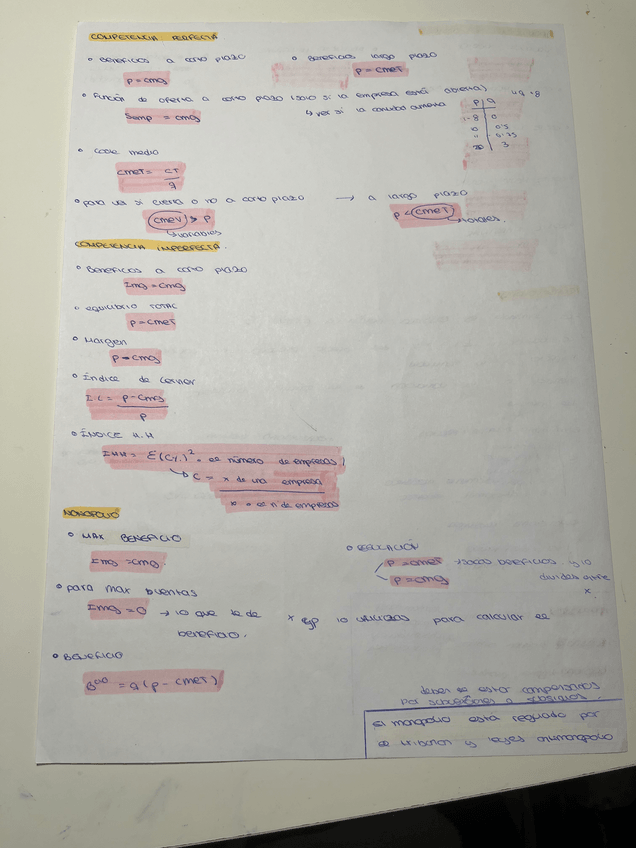 COMPETENCIA PERFECTA
• Beneficios a corto plazo
P = cmg
• Beneficios largo plazo
P = CMeT
• Función de oferta a corto plazo (solo si la empresa está abierta)
Semp = cmg
↳ ver si la
P | Q
8 | 0
10 | 0.5
20 | 3
• coste medio
CMeT = CT / q
• para ver si cierra o no a corto plazo → a largo plazo
CMeV > P
↳ variables
P < CMeT
↳ totales.
COMPETENCIA IMPERFECTA.
• Beneficios a corto plazo
Img = cmg
• equilibrio TOTAL
P = CMeT
• Margen
P - cmg
• Índice de Lerner
I.L = P - Cmg / P
• ÍNDICE H.H
IHH = Σ(C%)² · el número de empresas
↳ C = x de una empresa
n de empresas
MONOPOLIO
• MAX BENEFICIO
Img = cmg.
• REGULACIÓN
P = CMeT → sacas beneficios y lo divides entre x.
P = cmg
• para max
Img = 0 → lo que te de x lo utilizas para calcular el
beneficio.
• BENEFICIO
B⁰⁰ = q (P - CMeT)
deben de estar compensados
por subvenciones o
el monopolio está regulado por
y leyes antimonopolio